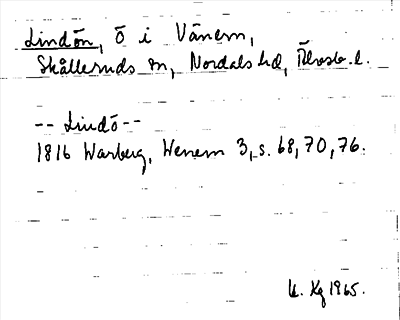 Lindön, ö i Vänern,
Skålleruds sn, Nordals hd, Älvsb. l.
-- Lindö --
1816 Warberg, Wenern 3, s. 68, 70, 76.
Kg 1965.